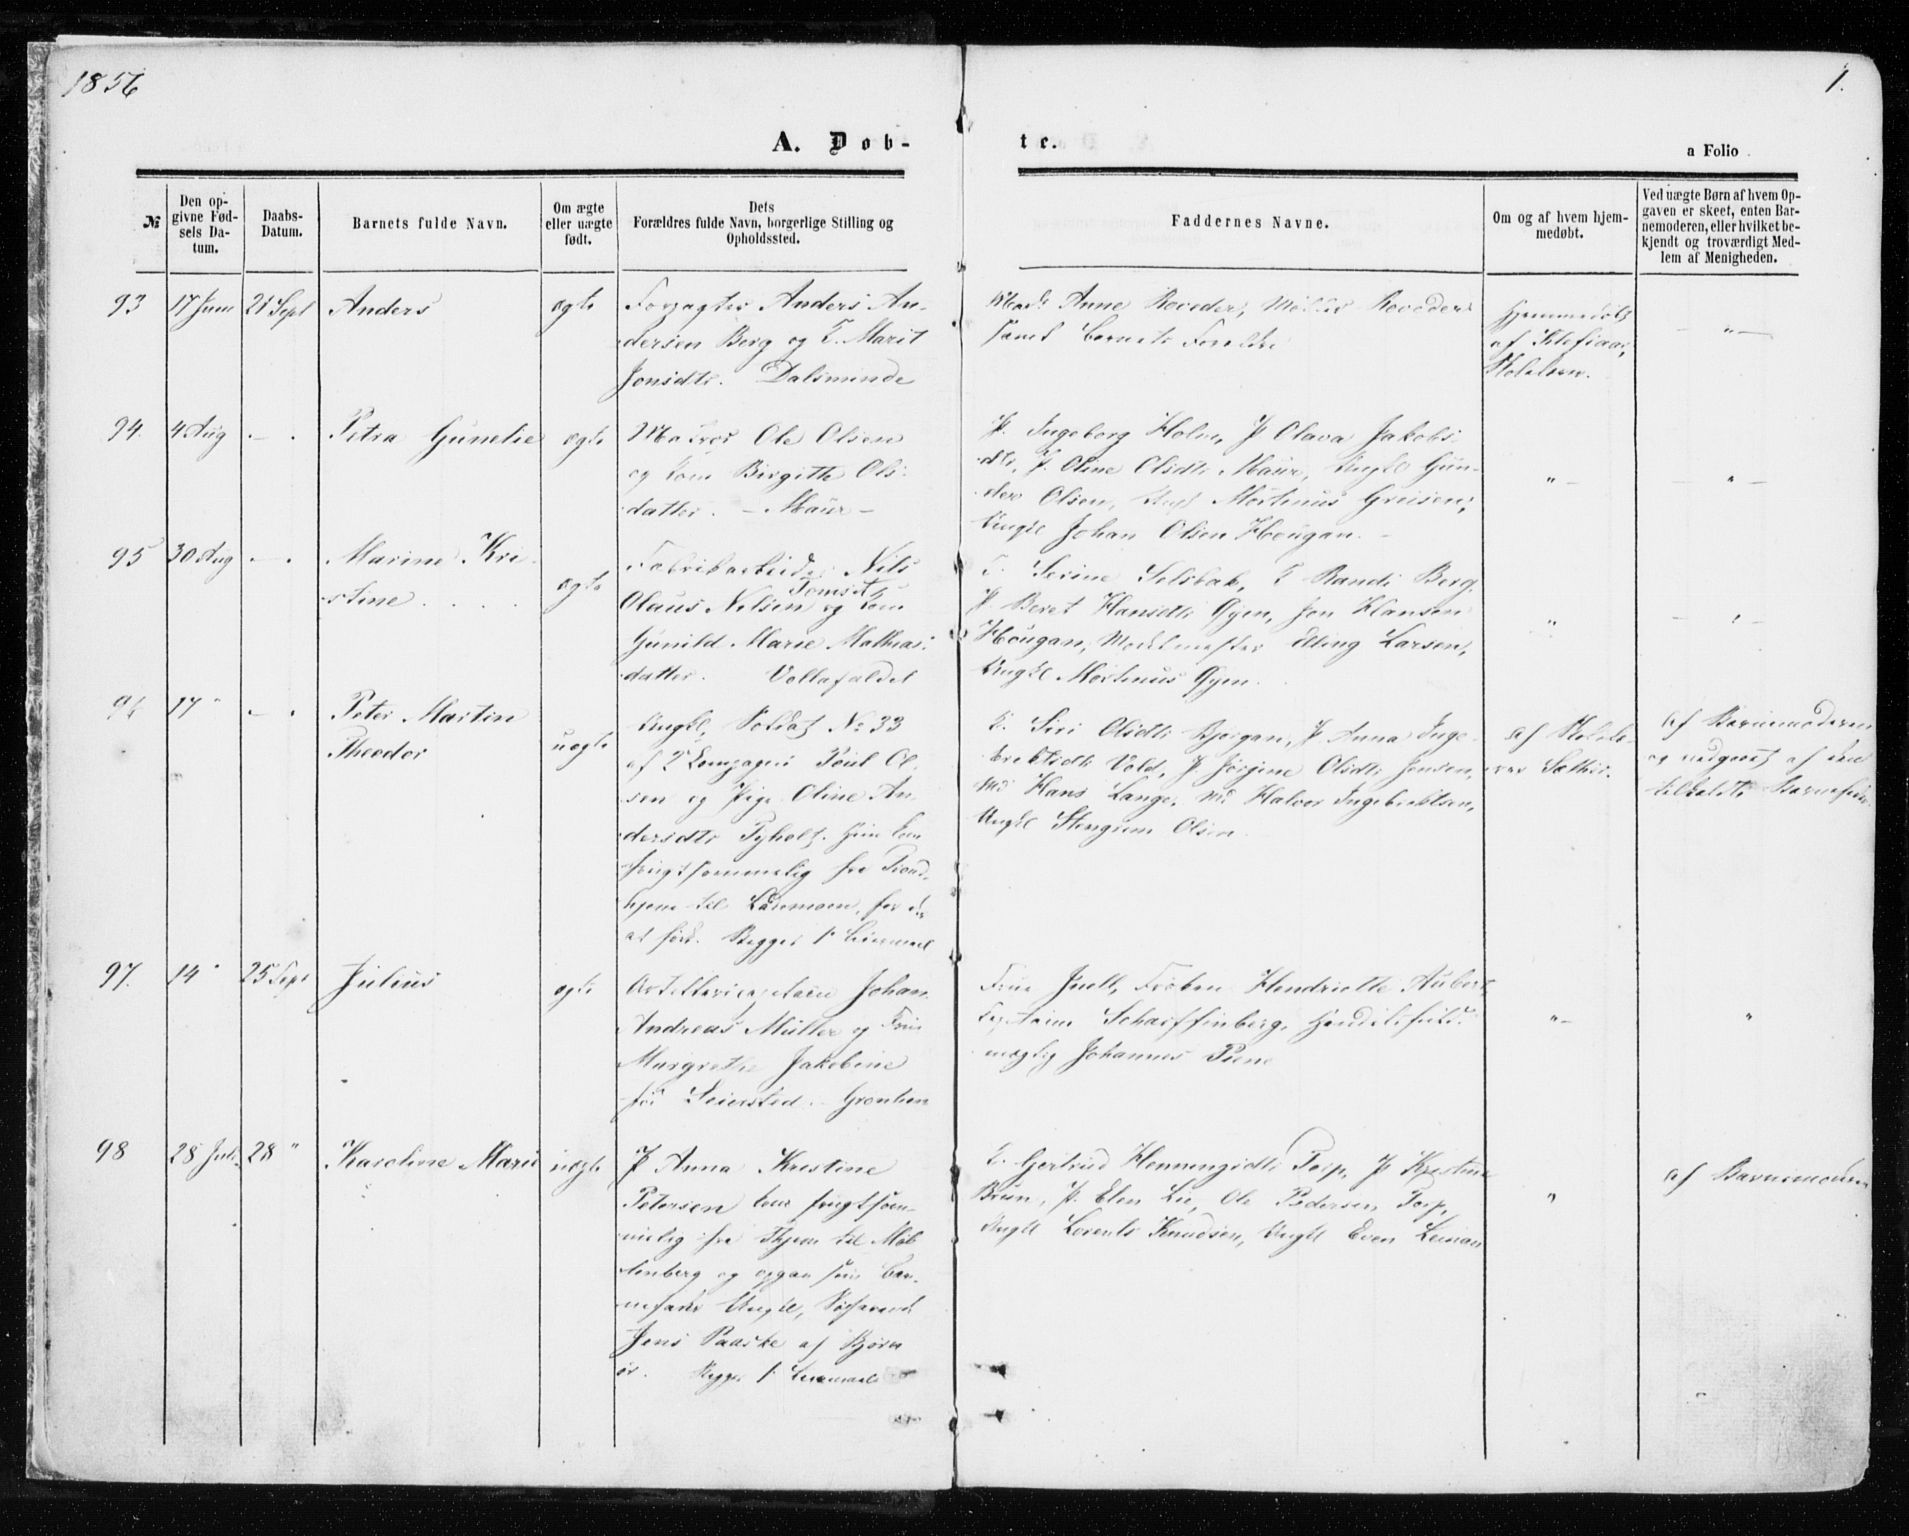 1856
1.
A. Døb-
te.
a Folio
№
Den op-
givne Fød-
sels Da-
tum.
Daabs-
Datum.
Barnets fulde Navn.
Om ægte
eller uægte
født.
Dets
Forældres fulde Navn, borgerlige Stilling og
Opholdssted.
Faddernes Navne.
Om og af hvem hjem-
medøbt.
Ved uægte Børn af hvem Op-
gaven er skeet, enten Bar-
nemoderen, eller hvilket be-
kjendt og troværdigt Med-
lem af Menigheden.
93
17 Juni
21 Sept
Anders
ægte
Forpagter Anders An-
dersen Berg og K. Marit
Jonsdtr. Dalsminde
Anne
samt Barnets Forældre
Hjemmedøbt
af
94.
4 Aug
Petra Gunelie
ægte
Matros Ole Olsen
og Kone Birgitte Ols-
datter. - Maur -
P. Ingeborg Holm, P Olava Jakobs-
dtr, P. Oline Olsdtr Maur, Ungkl Gun-
der Olsen, Ungk Mortinus Greisen,
Ungkl Johan Olsen Hougan.
95
30 Aug
Marine Kri-
stine
ægte
Fabrikarbeider Nils
Olaus Nilsen Tomset og Kone
Gunild Marie Mathias-
datter. Vollafaldet
K. Serine Selsbak, K Randi Berg,
P. Beret Hansdtr Øyen, Jon Hansen
Hougan, Modelmester Elling Larsen,
Ungkl Mortinus Øyen.
96
17 "
Peter Martin
Theodor
uægte
Ungkl, Soldat No 33
af Kompagni Poul Ol-
sen og Pige Oline An-
dersdtr Tyholt. Hun kom
frugtsommelig fra Trond-
hjem til
at føde. Begges 1ste Leiermaal
K. Siri Olsdtr Bjørgan, P Anna Inge-
brektsdtr Vold, P. Jørgine Olsdtr Jensen,
Md Hans Lange, Md Halvor Ingebriktsen,
Ungkl Olsen
af Skolelæ-
rer Sæther.
af Barnemoderen
og af den
97.
14 "
25 Sept
Julius
ægte
Artillericapitain Johan
Andreas Müller og Frue
Margrethe Jakobine
før Seiersted. - Grønlien
Frue Juell, Frøken Henriette Aubert,
Captain Scharffinberg, Handelsfuld-
mægtig Johannes Piene
98
28 Juli
28 "
Karoline Marie
uægte
P Anna Kristine
Petersen kom frugtsom-
melig fra Thjem til Møl-
lenberg og opgav som Bar-
nefader Ungkl, Søfarende
Jens Paaske af Bjørn-
ør. Begges 1 Leiermaal
K. Gertrud Henningsdtr Torp, P Kristine
Brun, P. Elen Lie, Ole Pedersen Torp,
Ungkl Lorents Knudsen, Ungkl Even Leiran
af Barnemoderen